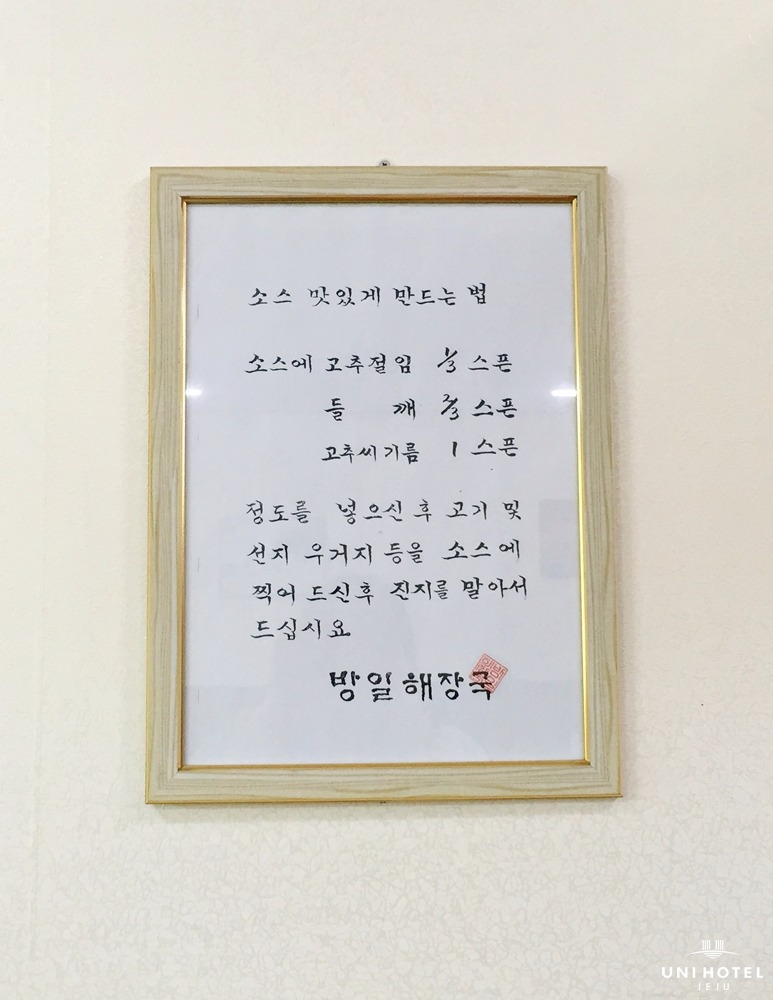 소스 맛있게 만드는 법
소스에 고추절임 1/3 스픈
들 깨 2/3 스픈
고추씨기름 1 스픈
정도를 넣으신 후 고기 및
선지 우거지 등을 소스에
찍어 드신후 진지를 말아서
드십시요
방일해장국
UNI HOTEL
JEJU